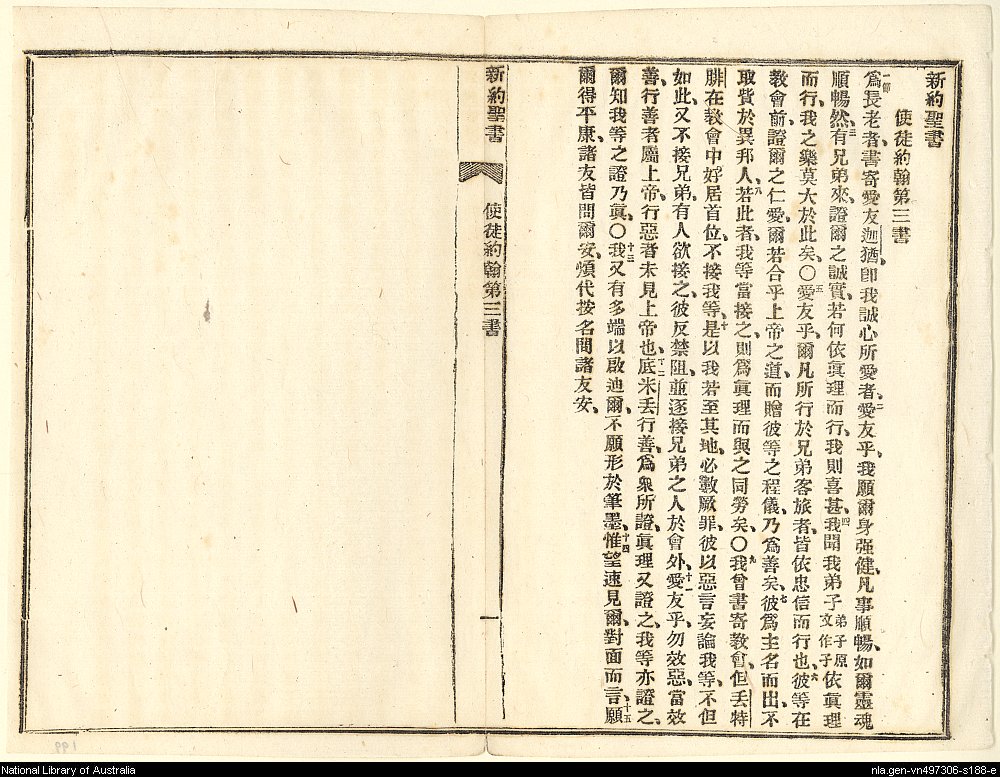 新約聖書
使徒約翰第三書
一節爲長老者、書寄愛友迦猶、卽我誠心所愛者、二愛友乎、我願爾身强健、凡事順暢、如爾靈魂
順暢然、三有兄弟來、證爾之誠實、若何依眞理而行、我則喜甚、四我聞我弟子弟子原文作子依眞理
而行、我之樂莫大於此矣、〇五愛友乎、爾凡所行於兄弟客旅者、皆依忠信而行也、六彼等在
教會前、證爾之仁愛、爾若合乎上帝之道、而贈彼等之程儀、乃爲善矣、七彼爲主名而出、不
取貲於異邦人、八若此者、我等當接之、則爲眞理而與之同勞矣、〇九我曾書寄教會、但丢特
腓在教會中、好居首位、不接我等、十是以我若至其地、必數厥罪、彼以惡言妄論我等、不但
如此、又不接兄弟、有人欲接之、彼反禁阻、並逐接兄弟之人於會外、十一愛友乎、勿效惡、當效
善、行善者屬上帝、行惡者未見上帝也、十二底米丢行善、爲衆所證、眞理又證之、我等亦證之、
爾知我等之證乃眞、〇十三我又有多端以啟迪爾、不願形於筆墨、十四惟望速見爾、對面而言、十五願
爾得平康、諸友皆問爾安、煩代按名問諸友安、
新約聖書
使徒約翰第三書
一
199
National Library of Australia
nla.gen-vn497306-s188-e